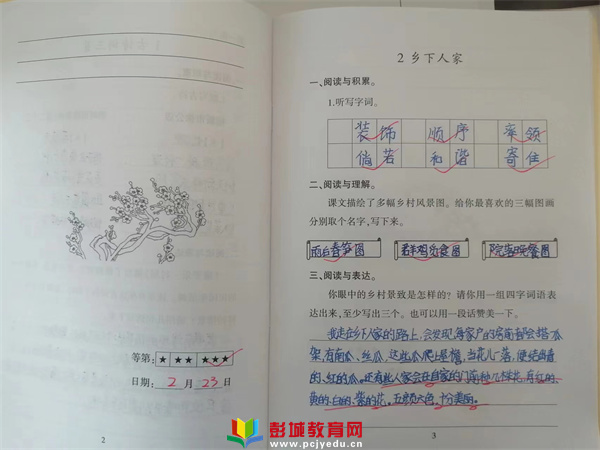 等第：★ ★★ ★★★
日期：2月23日
2
2 乡下人家
一、阅读与积累。
1.听写字词。
装饰 顺序 率领
倘若 和谐 寄住
二、阅读与理解。
课文描绘了多幅乡村风景图。给你最喜欢的三幅图画
分别取个名字，写下来。
雨后春笋图 群鸡觅食图 院落晚餐图
三、阅读与表达。
你眼中的乡村景致是怎样的？请你用一组四字词语表
达出来，至少写出三个。也可以用一段话赞美一下。
我走在乡下人家的路上，会发现每家户的房前都会搭瓜
架，有南瓜、丝瓜，这些瓜爬上屋檐，当花儿落，便结出青
的、红的瓜。还有些人家会在自家的门前种几株花，有红的、
黄的、白的、紫的花。五颜六色，十分美丽。
3
彭城教育网
www.pcjyedu.cn